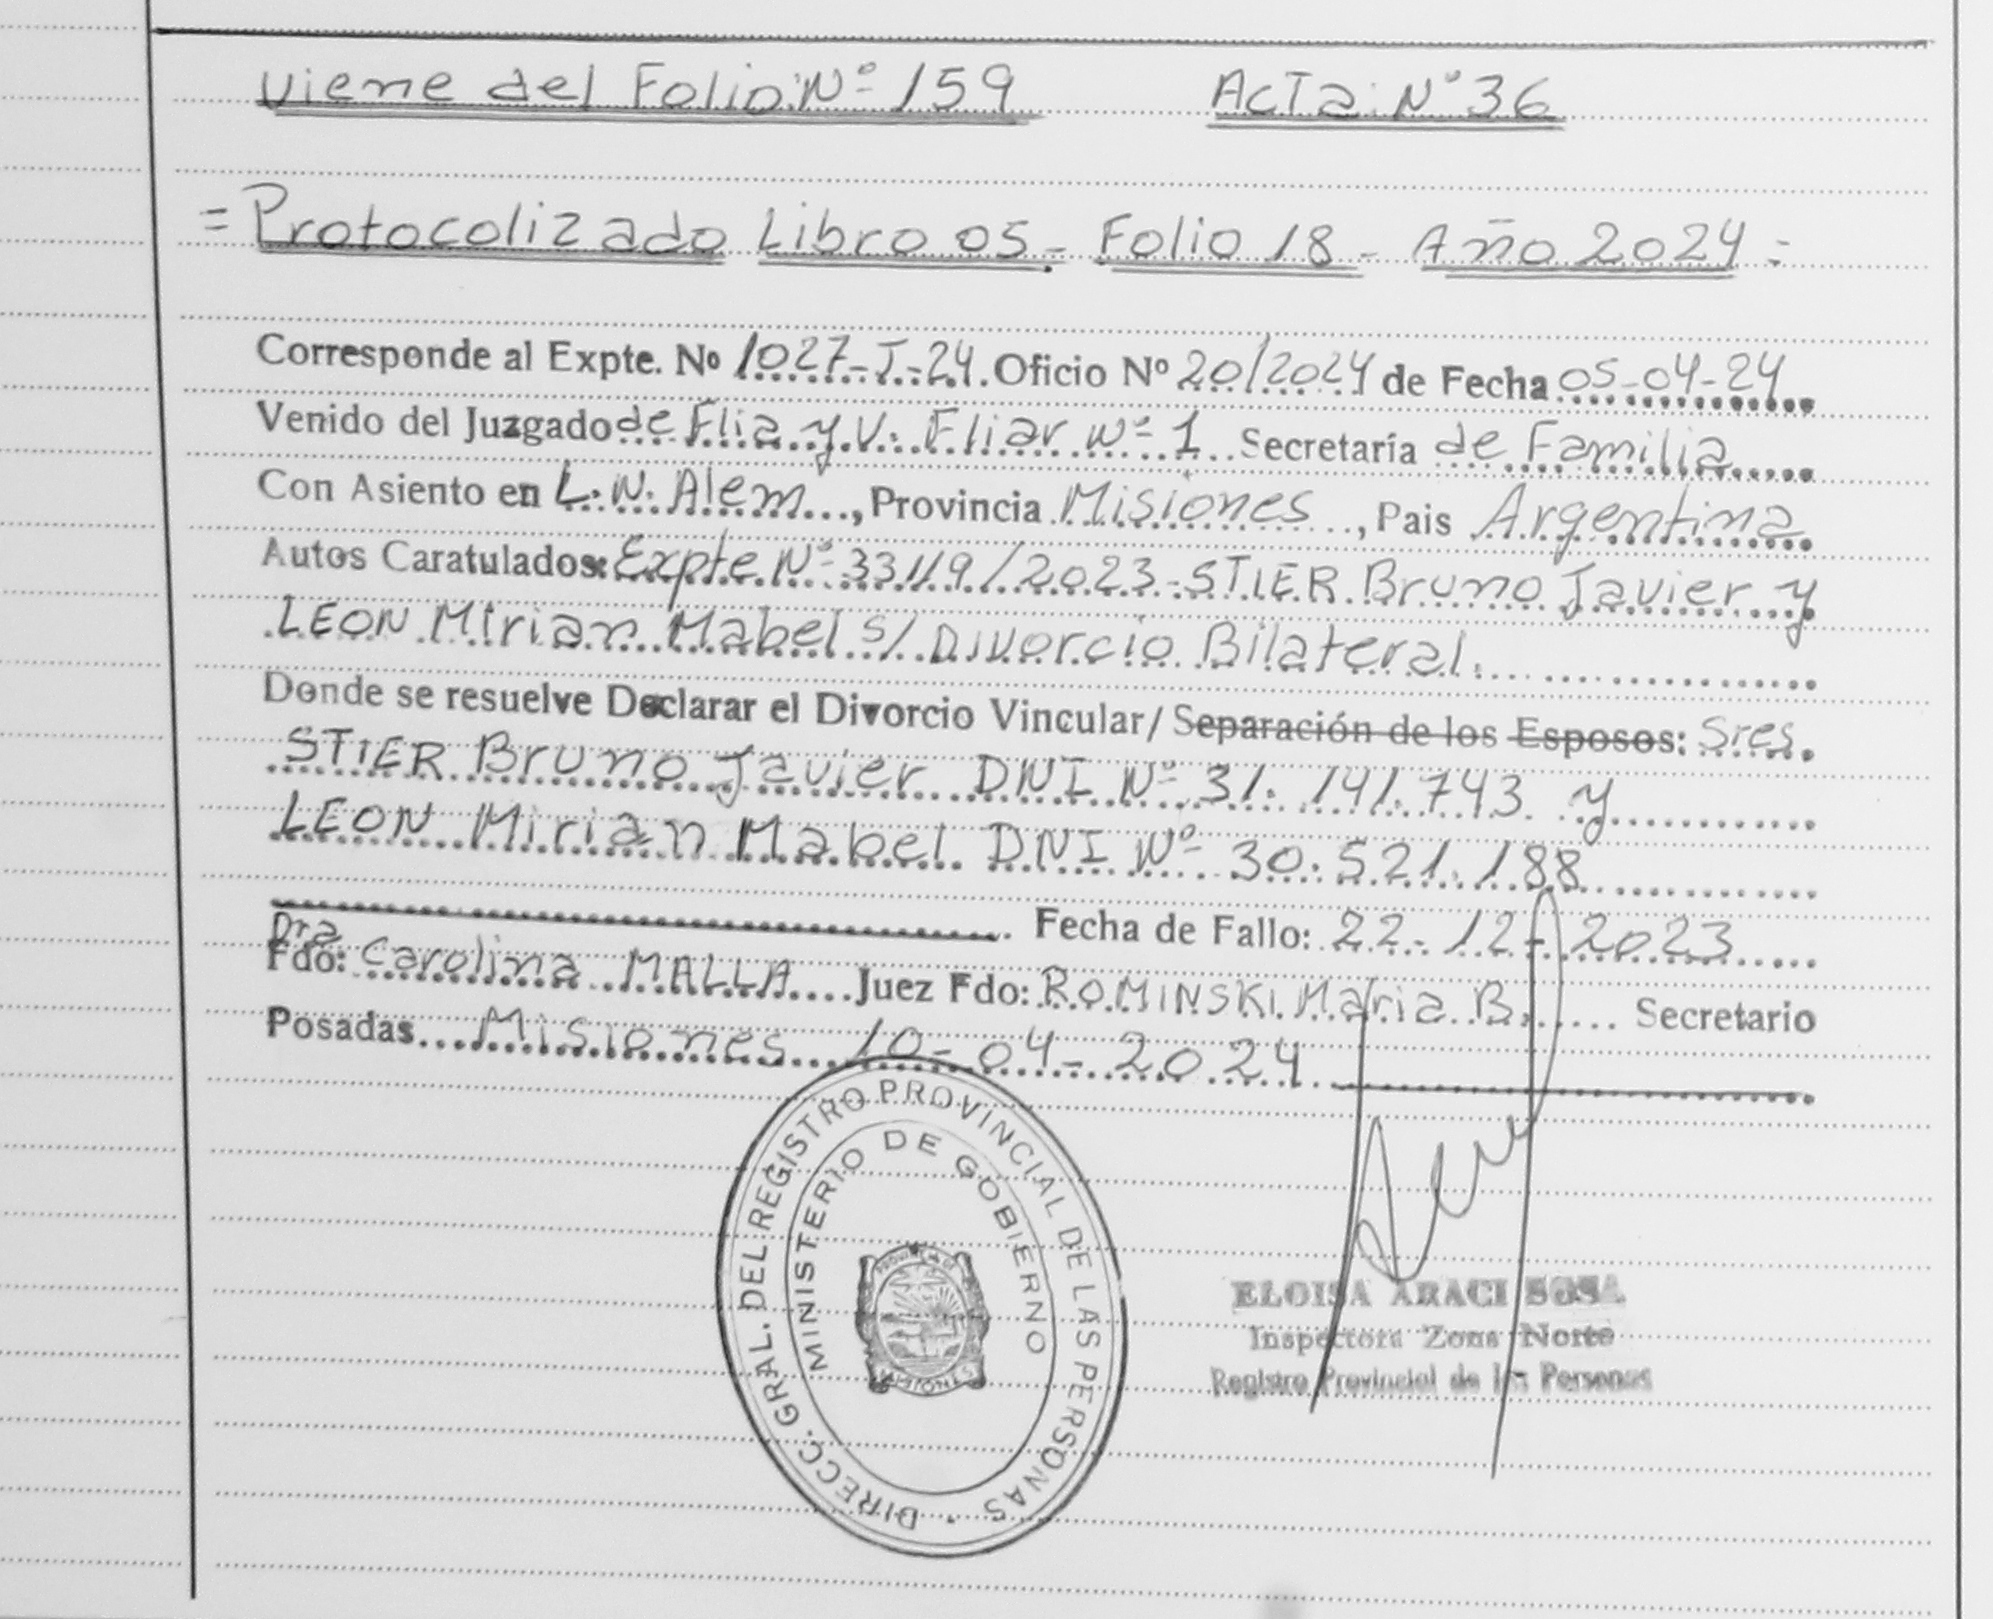 Viene del Folio: Nº 159 Acta: Nº 36
= Protocolizado Libro 05 - Folio 18 - Año 2024 =
Corresponde al Expte. Nº 1027-J-24. Oficio Nº 20/2024 de Fecha 05-04-24
Venido del Juzgado de Flia y V. Fliar Nº 1 Secretaría de Familia
Con Asiento en L. N. Alem, Provincia Misiones, Pais Argentina
Autos Caratulados: Expte Nº 33119/2023 - STIER Bruno Javier y
LEON Mirian Mabel s/ Divorcio Bilateral.
Donde se resuelve Declarar el Divorcio Vincular/ Separación de los Esposos: Sres.
STIER Bruno Javier DNI Nº 31.141.743 y
LEON Mirian Mabel DNI Nº 30.521.188
Fecha de Fallo: 22-12-2023
Dra
Fdo: Carolina MALLA Juez Fdo: ROMINSKI Maria B. Secretario
Posadas Misiones 10-04-2024
DIRECC. GRAL. DEL REGISTRO PROVINCIAL DE LAS PERSONAS
MINISTERIO DE GOBIERNO
MISIONES
ELOISA ARACI SOSA
Inspectora Zona Norte
Registro Provincial de las Personas